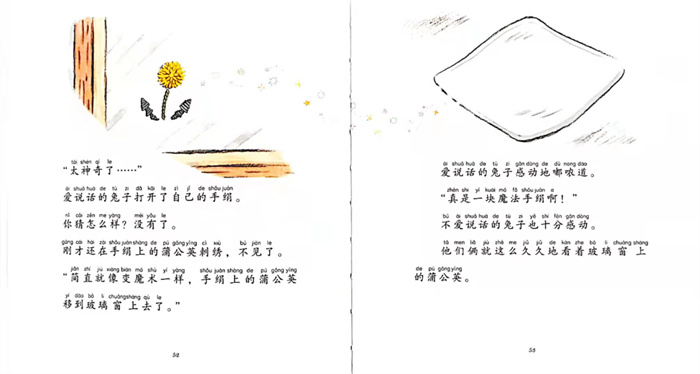 tài shén qí le
“太神奇了……”
ài shuō huà de tù zi dǎ kāi le zì jǐ de shǒu juàn
爱说话的兔子打开了自己的手绢。
nǐ cāi zěn me yàng méi yǒu le
你猜怎么样？没有了。
gāng cái hái zài shǒu juàn shàng de pú gōng yīng cì xiù bú jiàn le
刚才还在手绢上的蒲公英刺绣，不见了。
jiǎn zhí jiù xiàng biàn mó shù yí yàng shǒu juàn shàng de pú gōng yīng
“简直就像变魔术一样，手绢上的蒲公英
yí dào bō li chuāng shàng qù le
移到玻璃窗上去了。”
52
ài shuō huà de tù zi gǎn dòng de dū nong dào
爱说话的兔子感动地嘟哝道。
zhēn shì yí kuài mó fǎ shǒu juàn a
“真是一块魔法手绢啊！”
bú ài shuō huà de tù zi yě shí fēn gǎn dòng
不爱说话的兔子也十分感动。
tā men liǎ jiù zhè me jiǔ jiǔ de kàn zhe bō li chuāng shàng
他们俩就这么久久地看着玻璃窗上
de pú gōng yīng
的蒲公英。
53